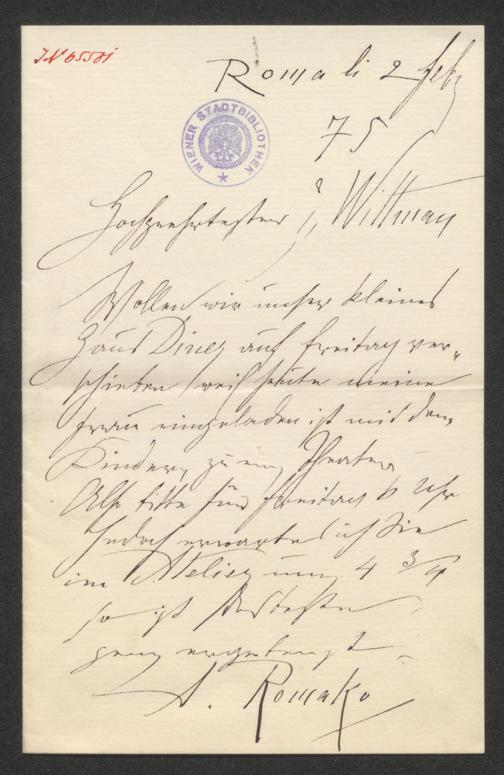 IN 65501
Roma li 2 Feb
75
WIENER STADTBIBLIOTHEK
Hochgeehrtester H Wittman
Wollen wir unser kleines
Haus Diner auf Freitag ver-
schieben weil heute meine
Frau eingeladen ist mit den
Kindern zu Theater
Also bitte für Freitag 6 Uhr
Jedoch erwarte ich Sie
im Atelier um 4 3/4
so ist
ganz ergebenst
A. Romako